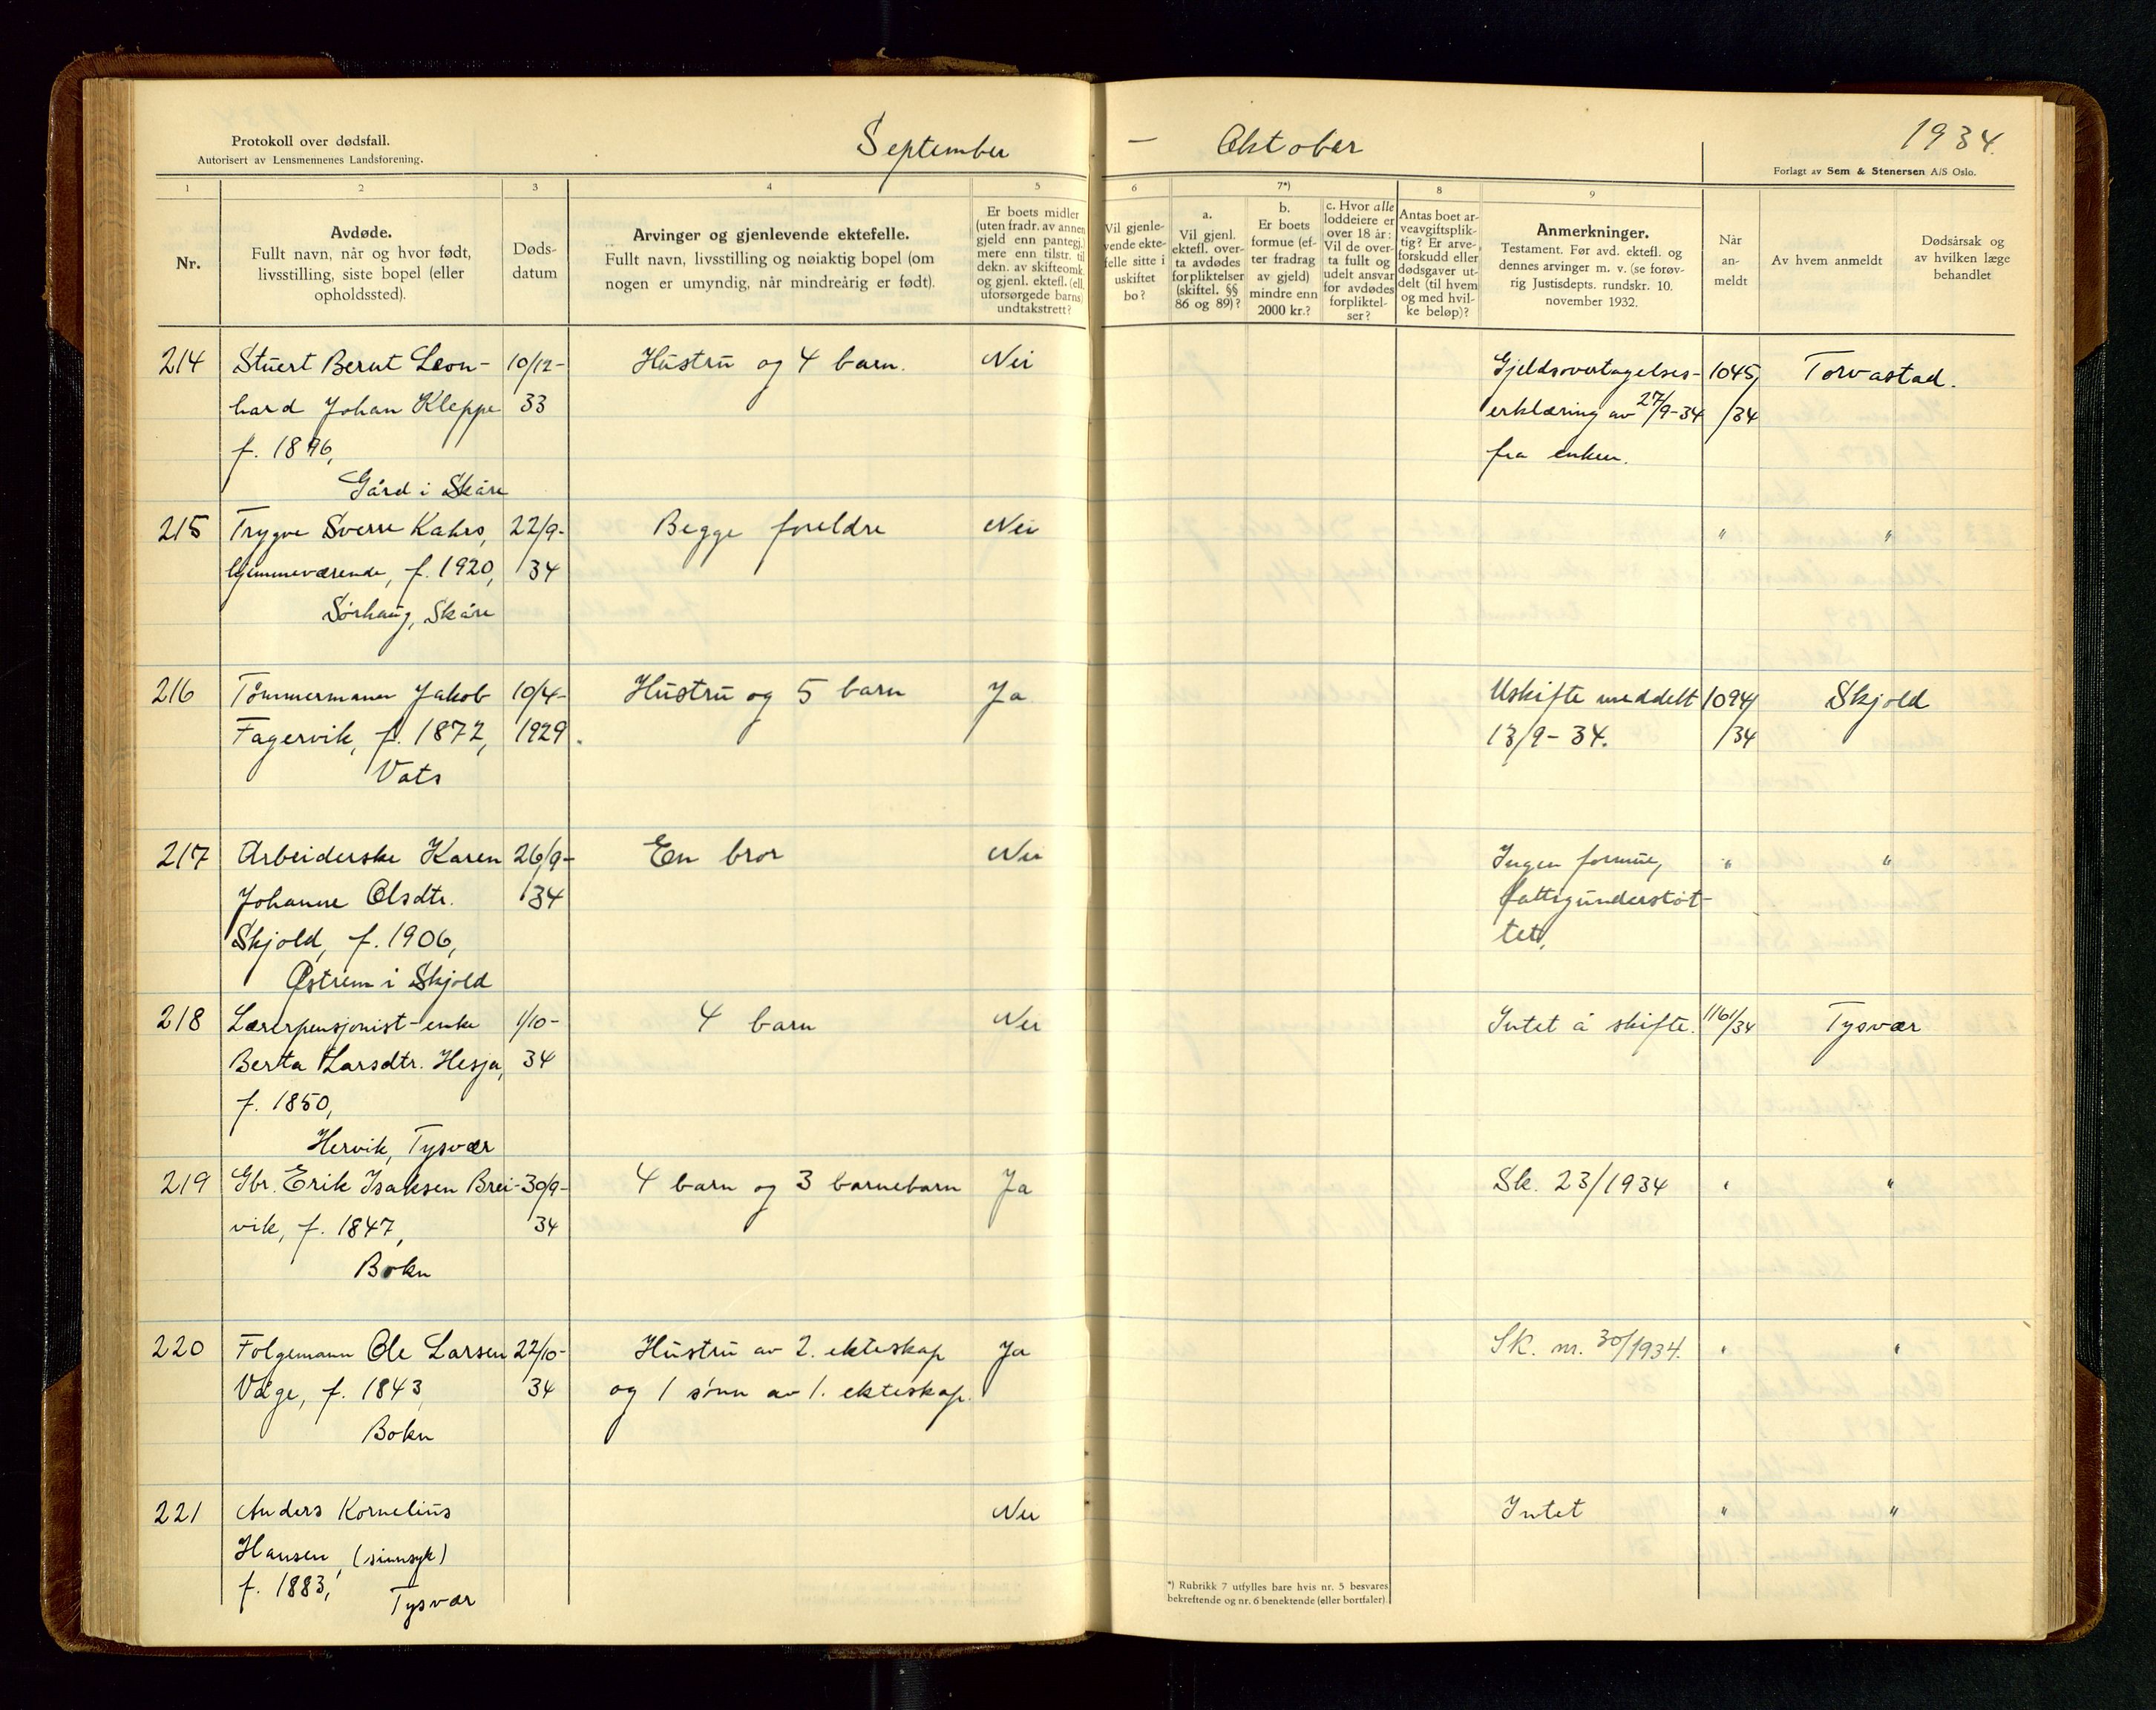 Protokoll over dødsfall.
Autorisert av Lensmennenes Landsforening.
September
— Oktober
1934.
Forlagt av Sem & Stenersen A/S Oslo.
1 2 3 4 5 6 7*) 8 9
Nr.
Avdøde.
Fullt navn, når og hvor født,
livsstilling, siste bopel (eller
opholdssted).
Døds-
datum
Arvinger og gjenlevende ektefelle.
Fullt navn, livsstilling og nøiaktig bopel (om
nogen er umyndig, når mindreårig er født).
Er boets midler
(uten fradr. av annen
gjeld enn pantegj.)
mere enn tilstr. til
dekn. av skifteomk.
og gjenl. ektefl. (ell.
uforsørgede barns)
undtakstrett?
Vil gjenle-
vende ekte-
felle sitte i
uskiftet
bo?
a.
Vil gjenl.
ektefl. over-
ta avdødes
forpliktelser
(skiftel. §§
86 og 89)?
b.
Er boets
formue (ef-
ter fradrag
av gjeld)
mindre enn
2000 kr.?
c. Hvor alle
loddeiere er
over 18 år:
Vil de over-
ta fullt og
udelt ansvar
for avdødes
forpliktel-
ser?
Antas boet ar-
veavgiftsplik-
tig? Er arve-
forskudd eller
dødsgaver ut-
delt (til hvem
og med hvil-
ke beløp)?
Anmerkninger.
Testament. Før avd. ektefl. og
dennes arvinger m. v. (se forøv-
rig Justisdepts. rundskr. 10.
november 1932.
Når
an-
meldt
Av hvem anmeldt
Dødsårsak og
av hvilken læge
behandlet
214 Stuert Bernt Leon- 10/12- Hustru og 4 barn. Nei Gjeldsovertagelses- 1045/ Torvastad.
hard Johan Kleppe 33 erklæring av 27/9-34 /34
f. 1896, fra enken.
Gård i Skåre
215 Trygve Sverre Kahrs, 22/9- Begge foreldre Nei " "
hjemmeværende, f. 1920, 34
Sørhaug, Skåre
216 Tømmermann Jakob 10/4- Hustru og 5 barn Ja Uskifte meddelt 1094/ Skjold
Fagervik, f. 1872, 1929. 13/9-34. /34
Vats
217 Arbeiderske Karen 26/9- En bror Nei Ingen formue, " "
Johanne Olsdtr. 34 fattigunderstøt-
Skjold, f. 1906, tet,
Østrem i Skjold
218 Lærerpensjonist-enke 1/10- 4 barn Nei Intet å skifte. 1161/34 Tysvær
Berta Larsdtr. Hesja, 34
f. 1850,
Hervik, Tysvær
219 Gbr. Erik Isaksen Brei- 30/9- 4 barn og 3 barnebarn Ja Sk. 23/1934 " "
vik, f. 1847, 34
Bokn
220 Følgemann Ole Larsen 22/10- Hustru av 2. ekteskap Ja SK. nr. 30/1934. " "
Våge, f. 1843, 34 og 1 sønn av 1. ekteskap.
Bokn
221 Anders Kornelius Nei Intet " "
Hansen, (sinnsyk)
f. 1883,
Tysvær
*) Rubrikk 7 utfylles bare hvis nr. 5 besvares
bekreftende og nr. 6 benektende (eller bortfaler).